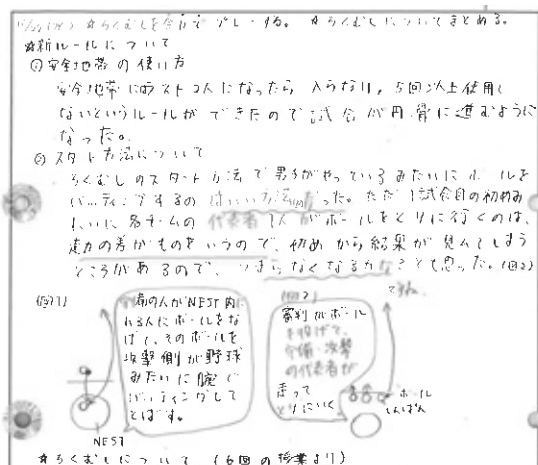 ろくむしを全員でプレーする。 ☆ろくむしについてまとめる。
☆新ルールについて
①安全地帯の使い方
安全地帯にラスト2人になったら入らない,5回以上使用し
ないというルールができたので試合が円滑に進むように
なった。
②スタート方法について
ろくむしのスタート方法で男子がやっているみたいにボールを
バッティングするのはいい方法だった。ただ1試合目の初めみ
たいに各チームの代表者1人がボールをとりに行くのは、
走力の差がものをいうので、初めから結果が見えてしまう
ところがあるので、つまらなくなるかなとも思った。(図2)
(図1)
守備の人がNEST内に
いる人にボールをな
げて、そのボールを
攻撃側が野球
みたいに腕で
バッティングして
とばす。
NEST
(図2)
審判がボール
を投げて、
守備・攻撃
の代表者が
走って
とりにいく
ボール
しんぱん
☆ろくむしについて (6回の授業より)